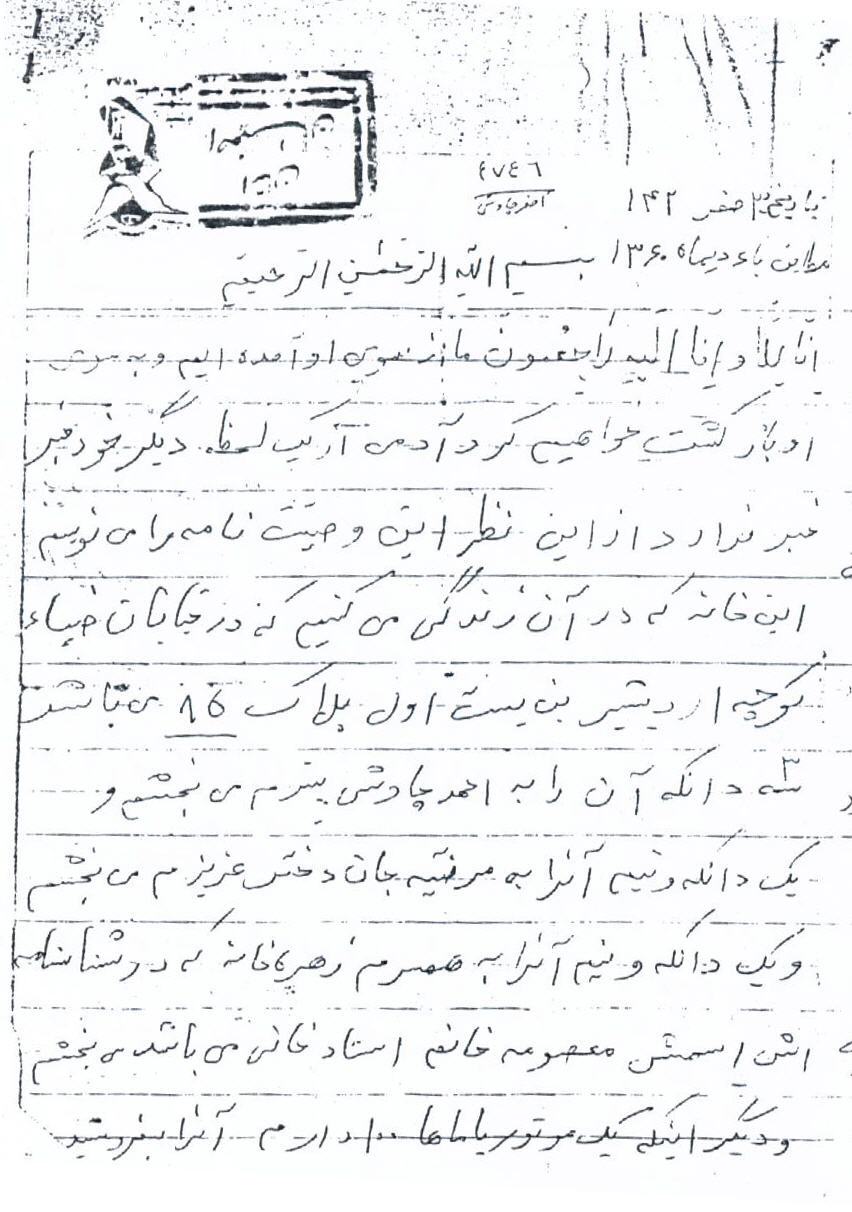 ٤٧٤٦
بتاریخ ٣ صفر ١۴٢
مطابق با دیماه ١٣۶٠ بسم الله الرحمن الرحیم
انا لله و انا الیه راجعون ما از سوی او آمده ایم و به سوی
او بازگشت خواهیم کرد آدمی از یک لحظه دیگر خود خبر
خبر ندارد از این نظر این وصیت نامه را می نویسم
این خانه که در آن زندگی می کنیم که در خیابان ضیاء
کوچه اردیشیر بن بست اول پلاک ٨٥ می باشد
٣ سه دانگه آن را به احمد چاوشی پسرم می بخشم و
یک دانگه و نیم آنرا به مرضیه جان دختر عزیزم می بخشم
و یک دانگه و نیم آنرا به همسرم زهره خانه که در شناسنامه
اش اسمش معصومه خانم استاد خانی می باشد می بخشم
و دیگر اینکه یک موتور یاماها ١٠٠ دارم آنرا بفروشید